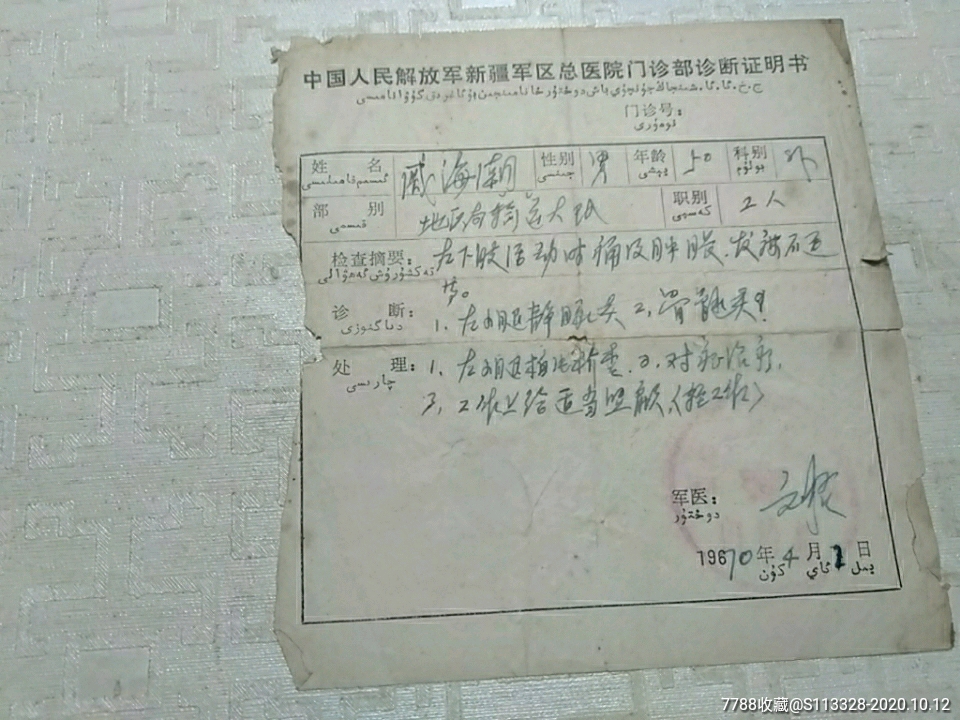 中国人民解放军新疆军区总医院门诊部诊断证明书
门诊号:
نومۇرى
姓 名 戚海潮 性别 男 年龄 50 科别 外
ئىسىم فامىلىسى جىنسى يېشى بۆلۈم
部 别 地区商输运大队 职别 工人
قىسمى كەسپى
检查摘要: 左下肢活动时痛及胖股,发疼不适
诊 断: 1、左小腿静脉炎 2、骨髓炎?
دىياگنوزى
处 理: 1、左小腿拍片检查,2、对症治疗,
چارىسى
3、工作上给适当照顾(轻工作)
军医:
دوختۇر
1970年4月1日
يىل ئاي كۈن
7788收藏@S113328-2020.10.12